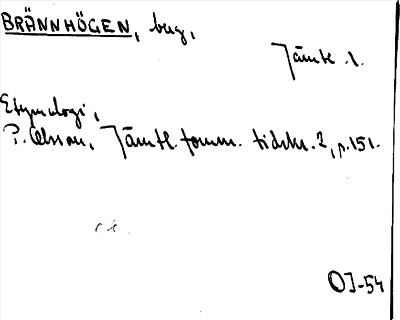 BRÄNNHÖGEN, bug,
Jämtl.
Etymologi,
P. Olsson, Jämtl. fornm. tidskr. 2, p. 151.
OJ-54